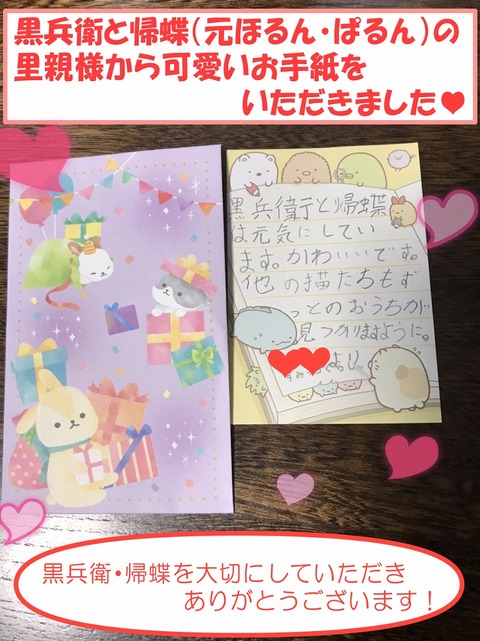 黒兵衛と帰蝶（元ほるん・ぱるん）の
里親様から可愛いお手紙を
いただきました♥
黒兵衛と帰蝶
は元気にしてい
ます。かわいいです。
他の猫たちもず
っとのおうちが
見つかりますように。
黒兵衛・帰蝶を大切にしていただき
ありがとうございます！